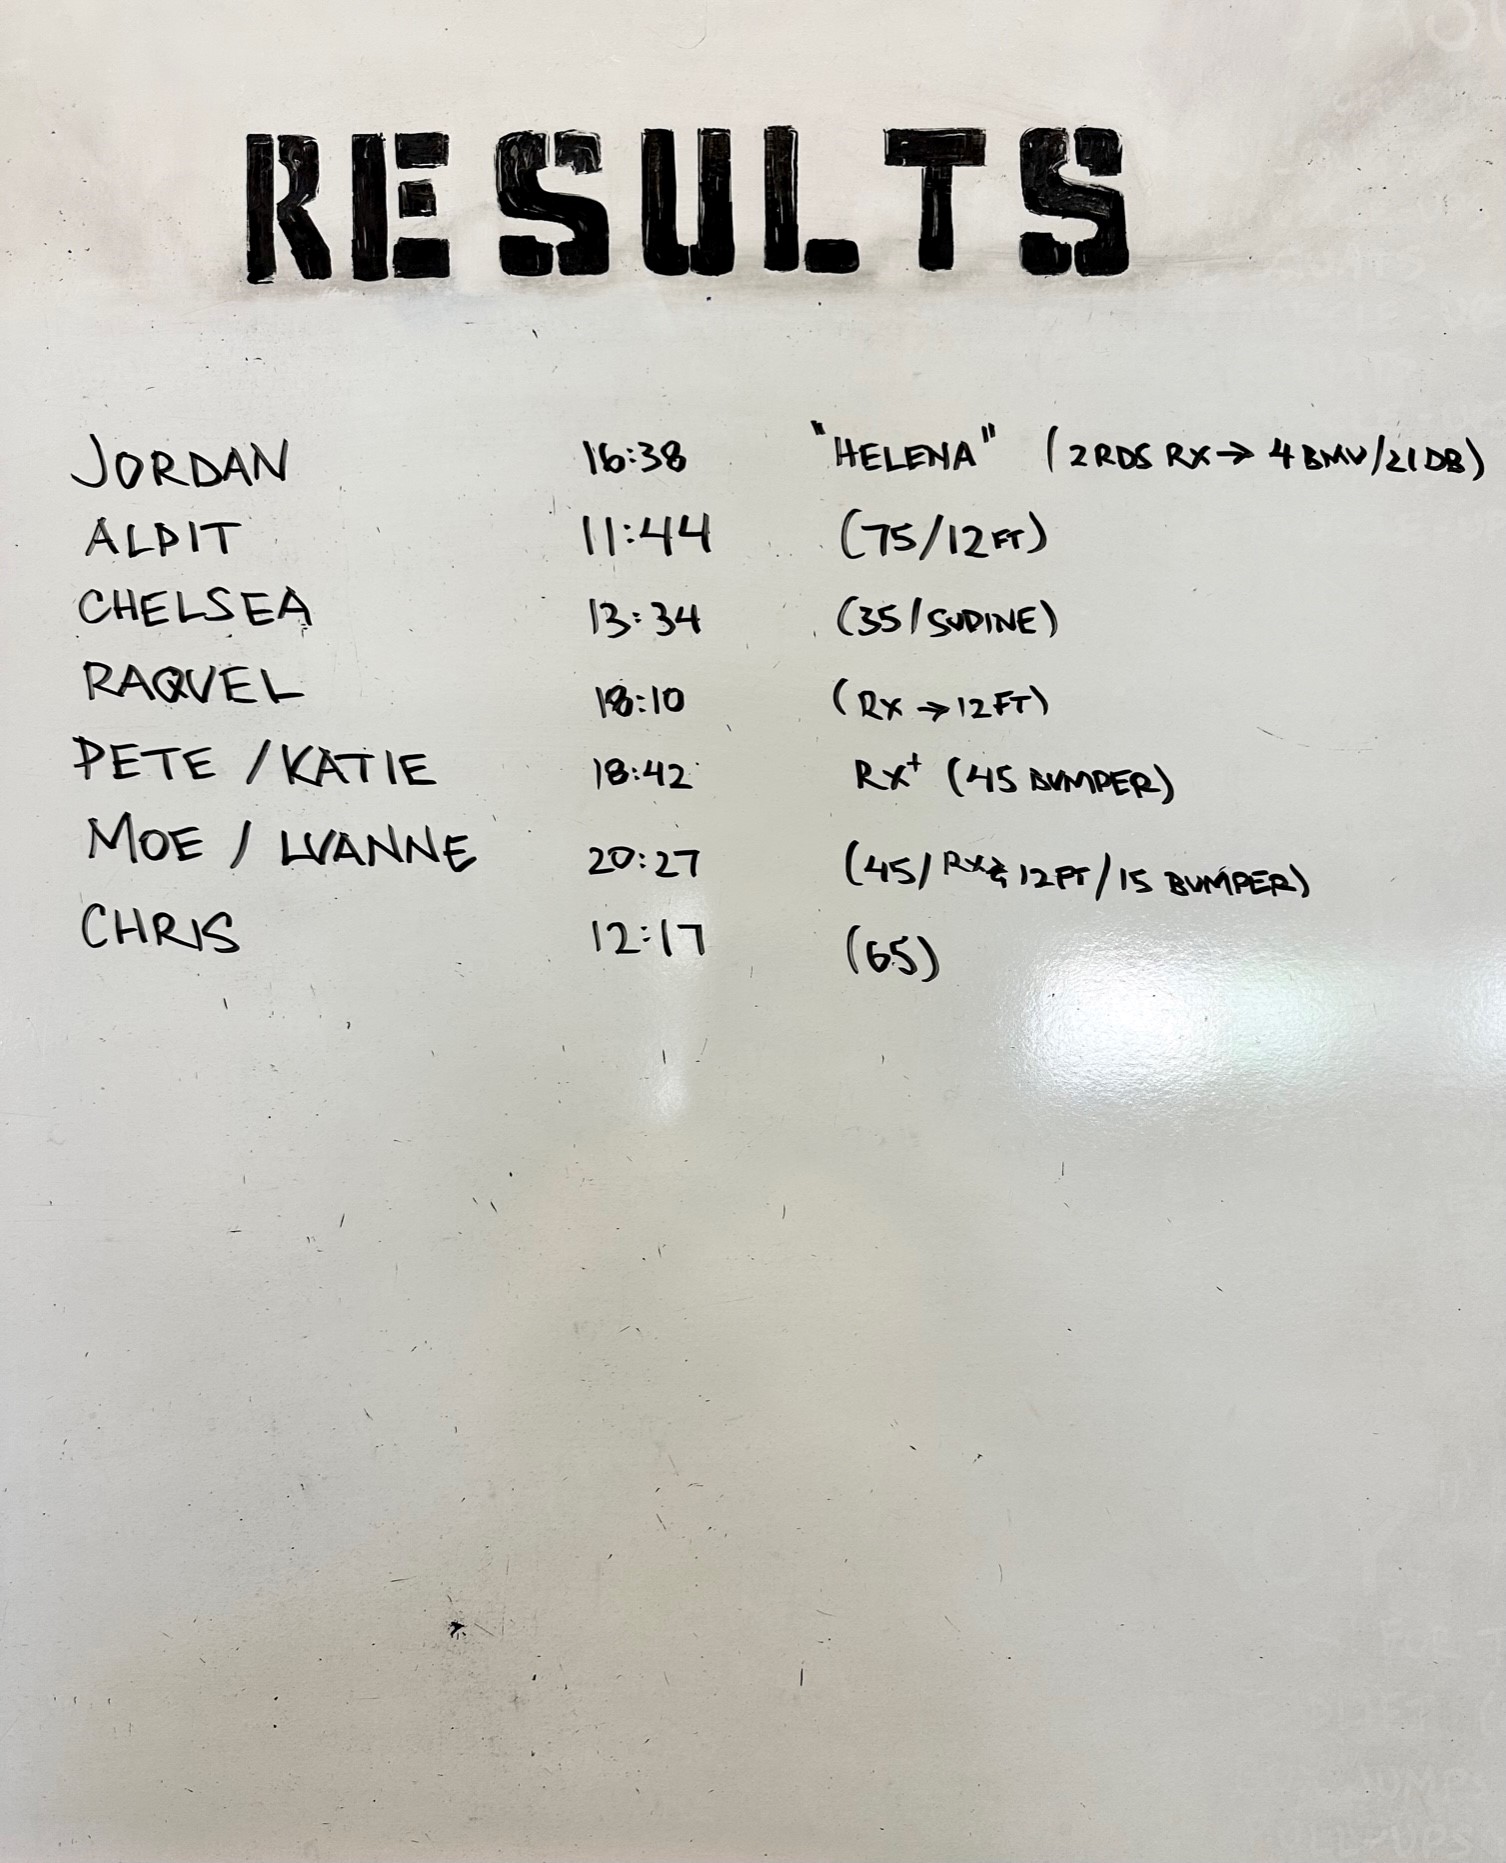 RESULTS
JORDAN 16:38 "HELENA" (2 RDS RX → 4 BMU/21 DB)
ALPIT 11:44 (75/12 FT)
CHELSEA 13:34 (35/SUPINE)
RAQUEL 18:10 (RX → 12 FT)
PETE / KATIE 18:42 RX+ (45 BUMPER)
MOE / LUANNE 20:27 (45/ RX & 12 FT / 15 BUMPER)
CHRIS 12:17 (65)